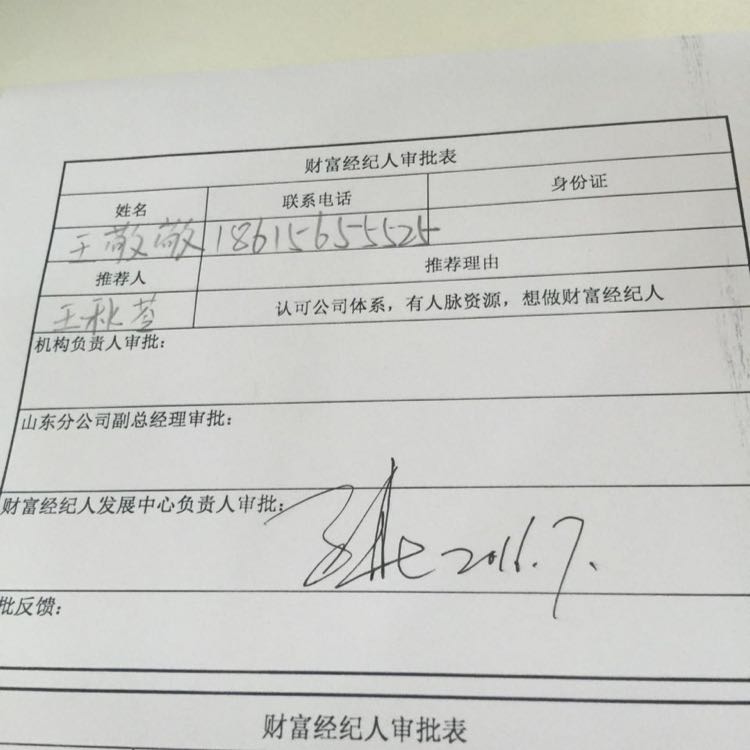 财富经纪人审批表
姓名 联系电话 身份证
王敬敬 18615655525
推荐人 推荐理由
王秋 认可公司体系，有人脉资源，想做财富经纪人
机构负责人审批：
山东分公司副总经理审批：
财富经纪人发展中心负责人审批：
2016.7.
批反馈：
财富经纪人审批表